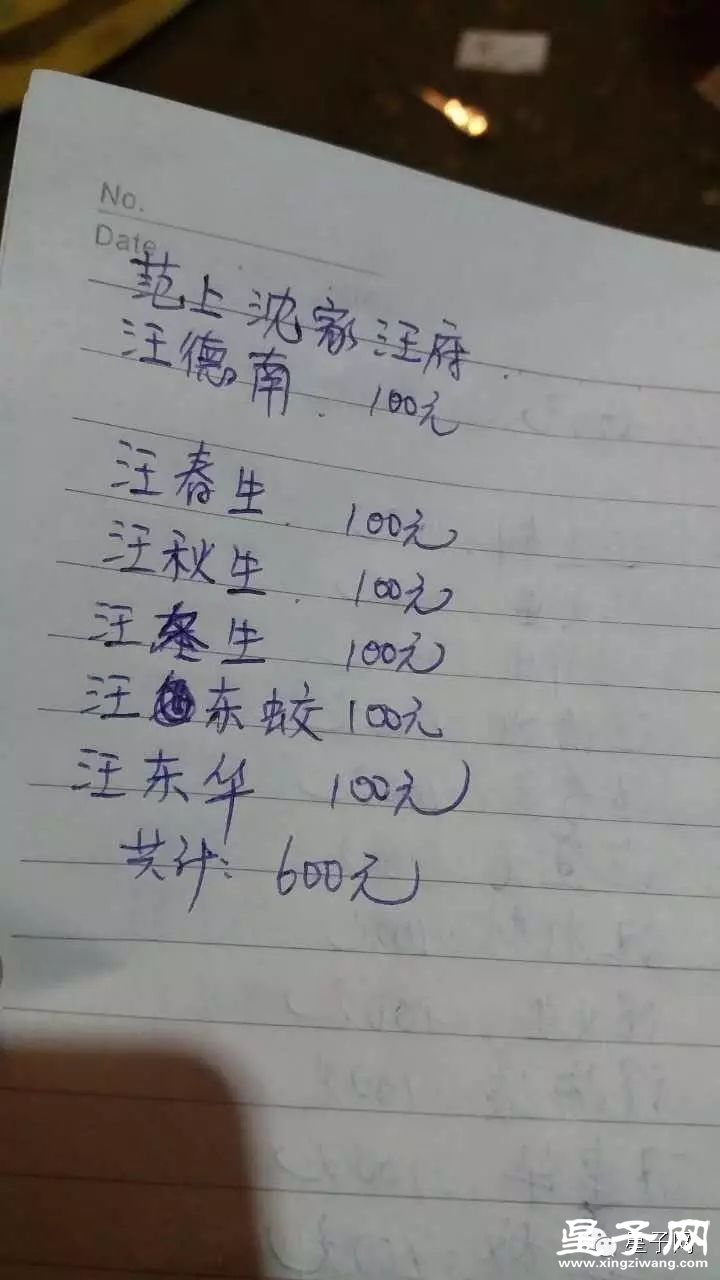 No.
Date
范上沈家汪府
汪德南. 100元
汪春生. 100元
汪秋生. 100元
汪冬生 100元
汪东蛟 100元
汪东华 100元
共计: 600元
星子网
星子网
www.xingziwang.com